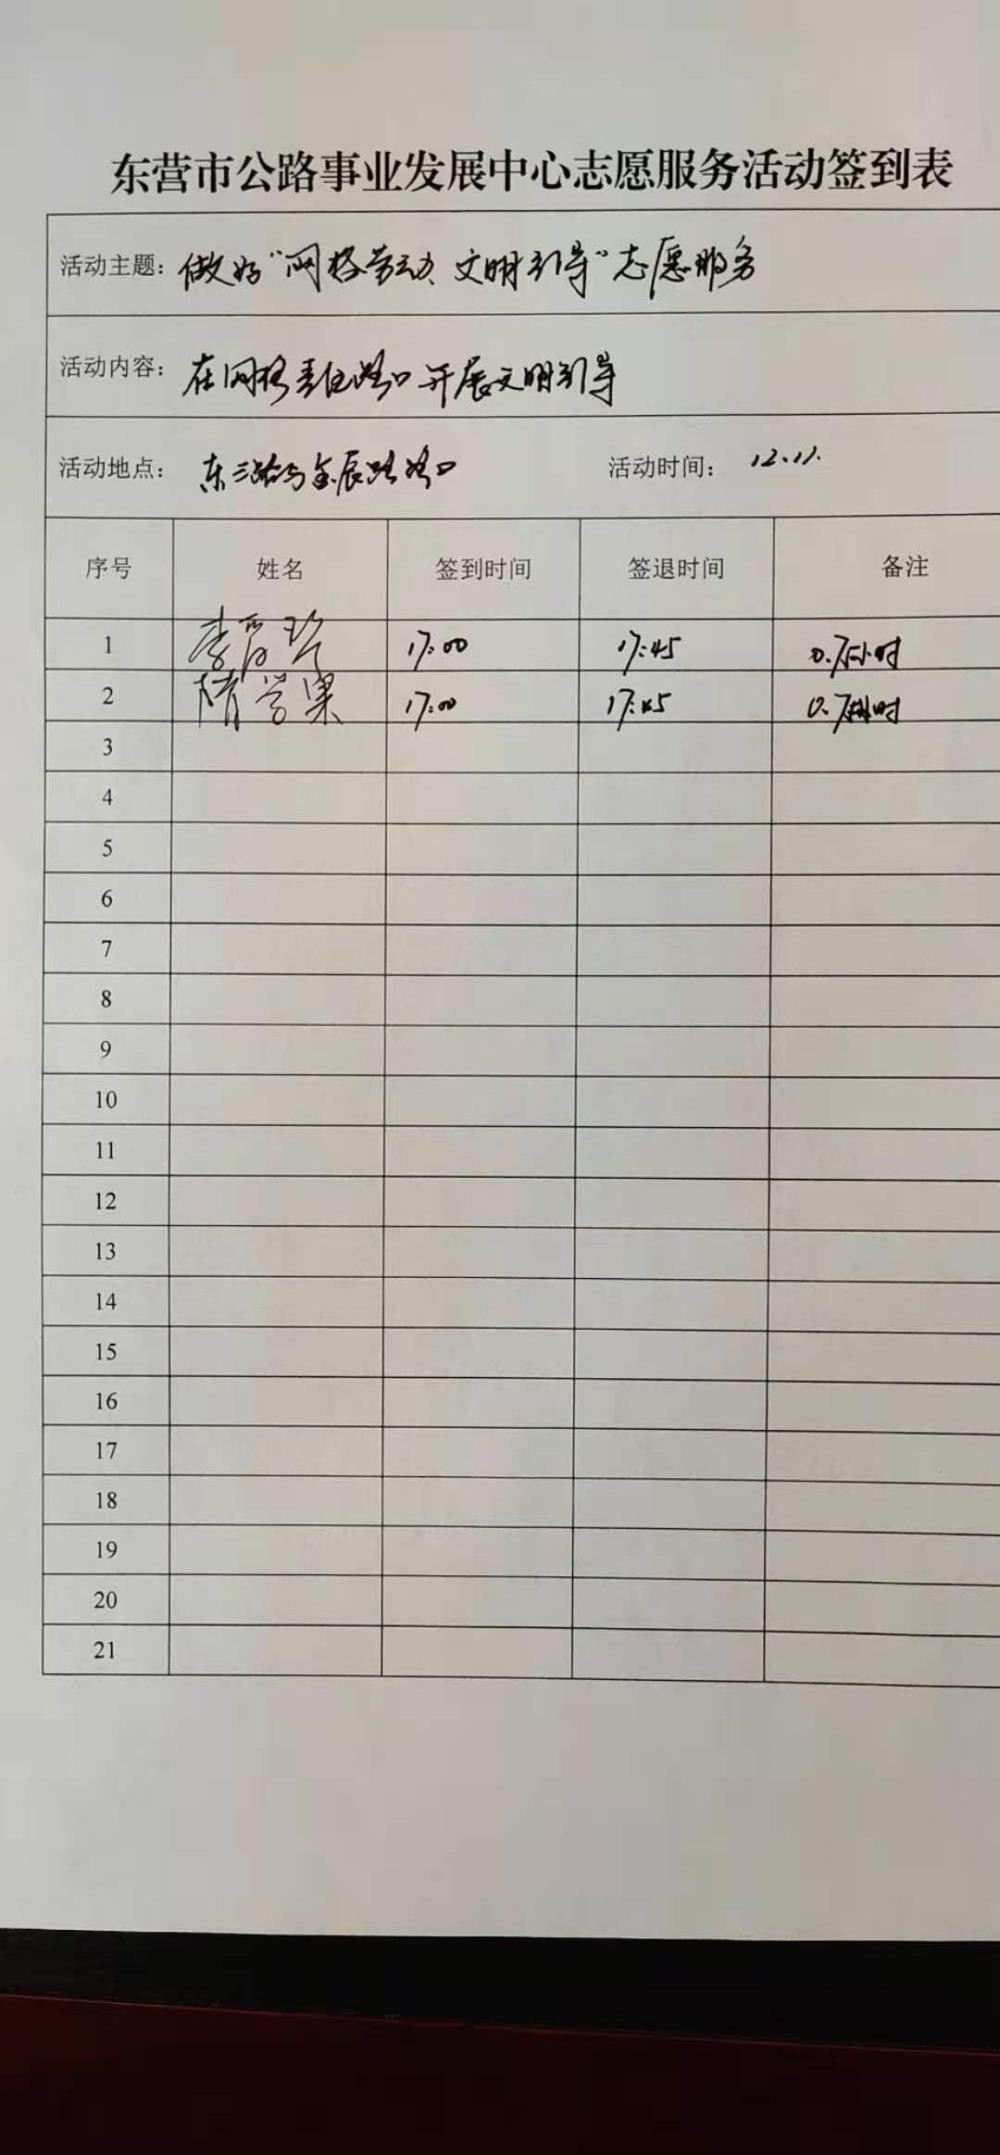 东营市公路事业发展中心志愿服务活动签到表
活动主题：做好“网格劳动、文明引导”志愿服务
活动内容：在网格责任路口开展文明引导
活动地点：东三路与金辰路路口 活动时间：12.11.
序号 姓名 签到时间 签退时间 备注
1 李 17:00 17:45 0.75小时
2 隋学果 17:00 17:45 0.75小时
3
4
5
6
7
8
9
10
11
12
13
14
15
16
17
18
19
20
21